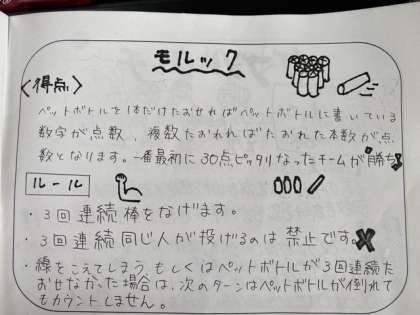 モルック
<得点>
ペットボトルを1本だけたおせればペットボトルに書いている
数字が点数、複数たおれればたおれた本数が点
数となります。一番最初に30点ピッタリなったチームが勝ち
ルール
・3回連続棒をなげます。
・3回連続同じ人が投げるのは禁止です。
・線をこえてしまうもしくはペットボトルが3回連続た
おせなかった場合は、次のターンはペットボトルが倒れて
もカウントしません。